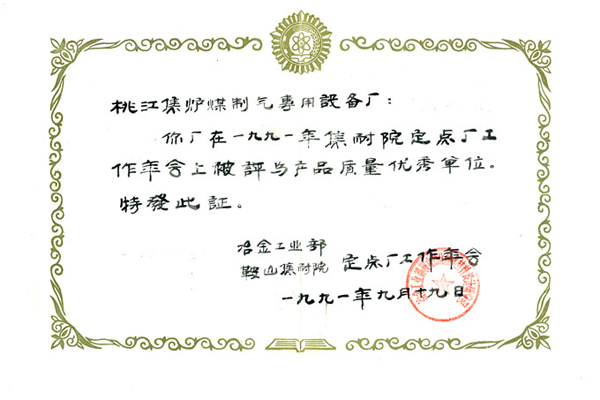 桃江焦炉煤制气專用設备厂：
你厂在一九九一年焦耐院定点厂工
作年会上被評为产品质量优秀单位。
特發此証。
冶金工业部
鞍山焦耐院
定点厂工作年会
一九九一年九月十九日